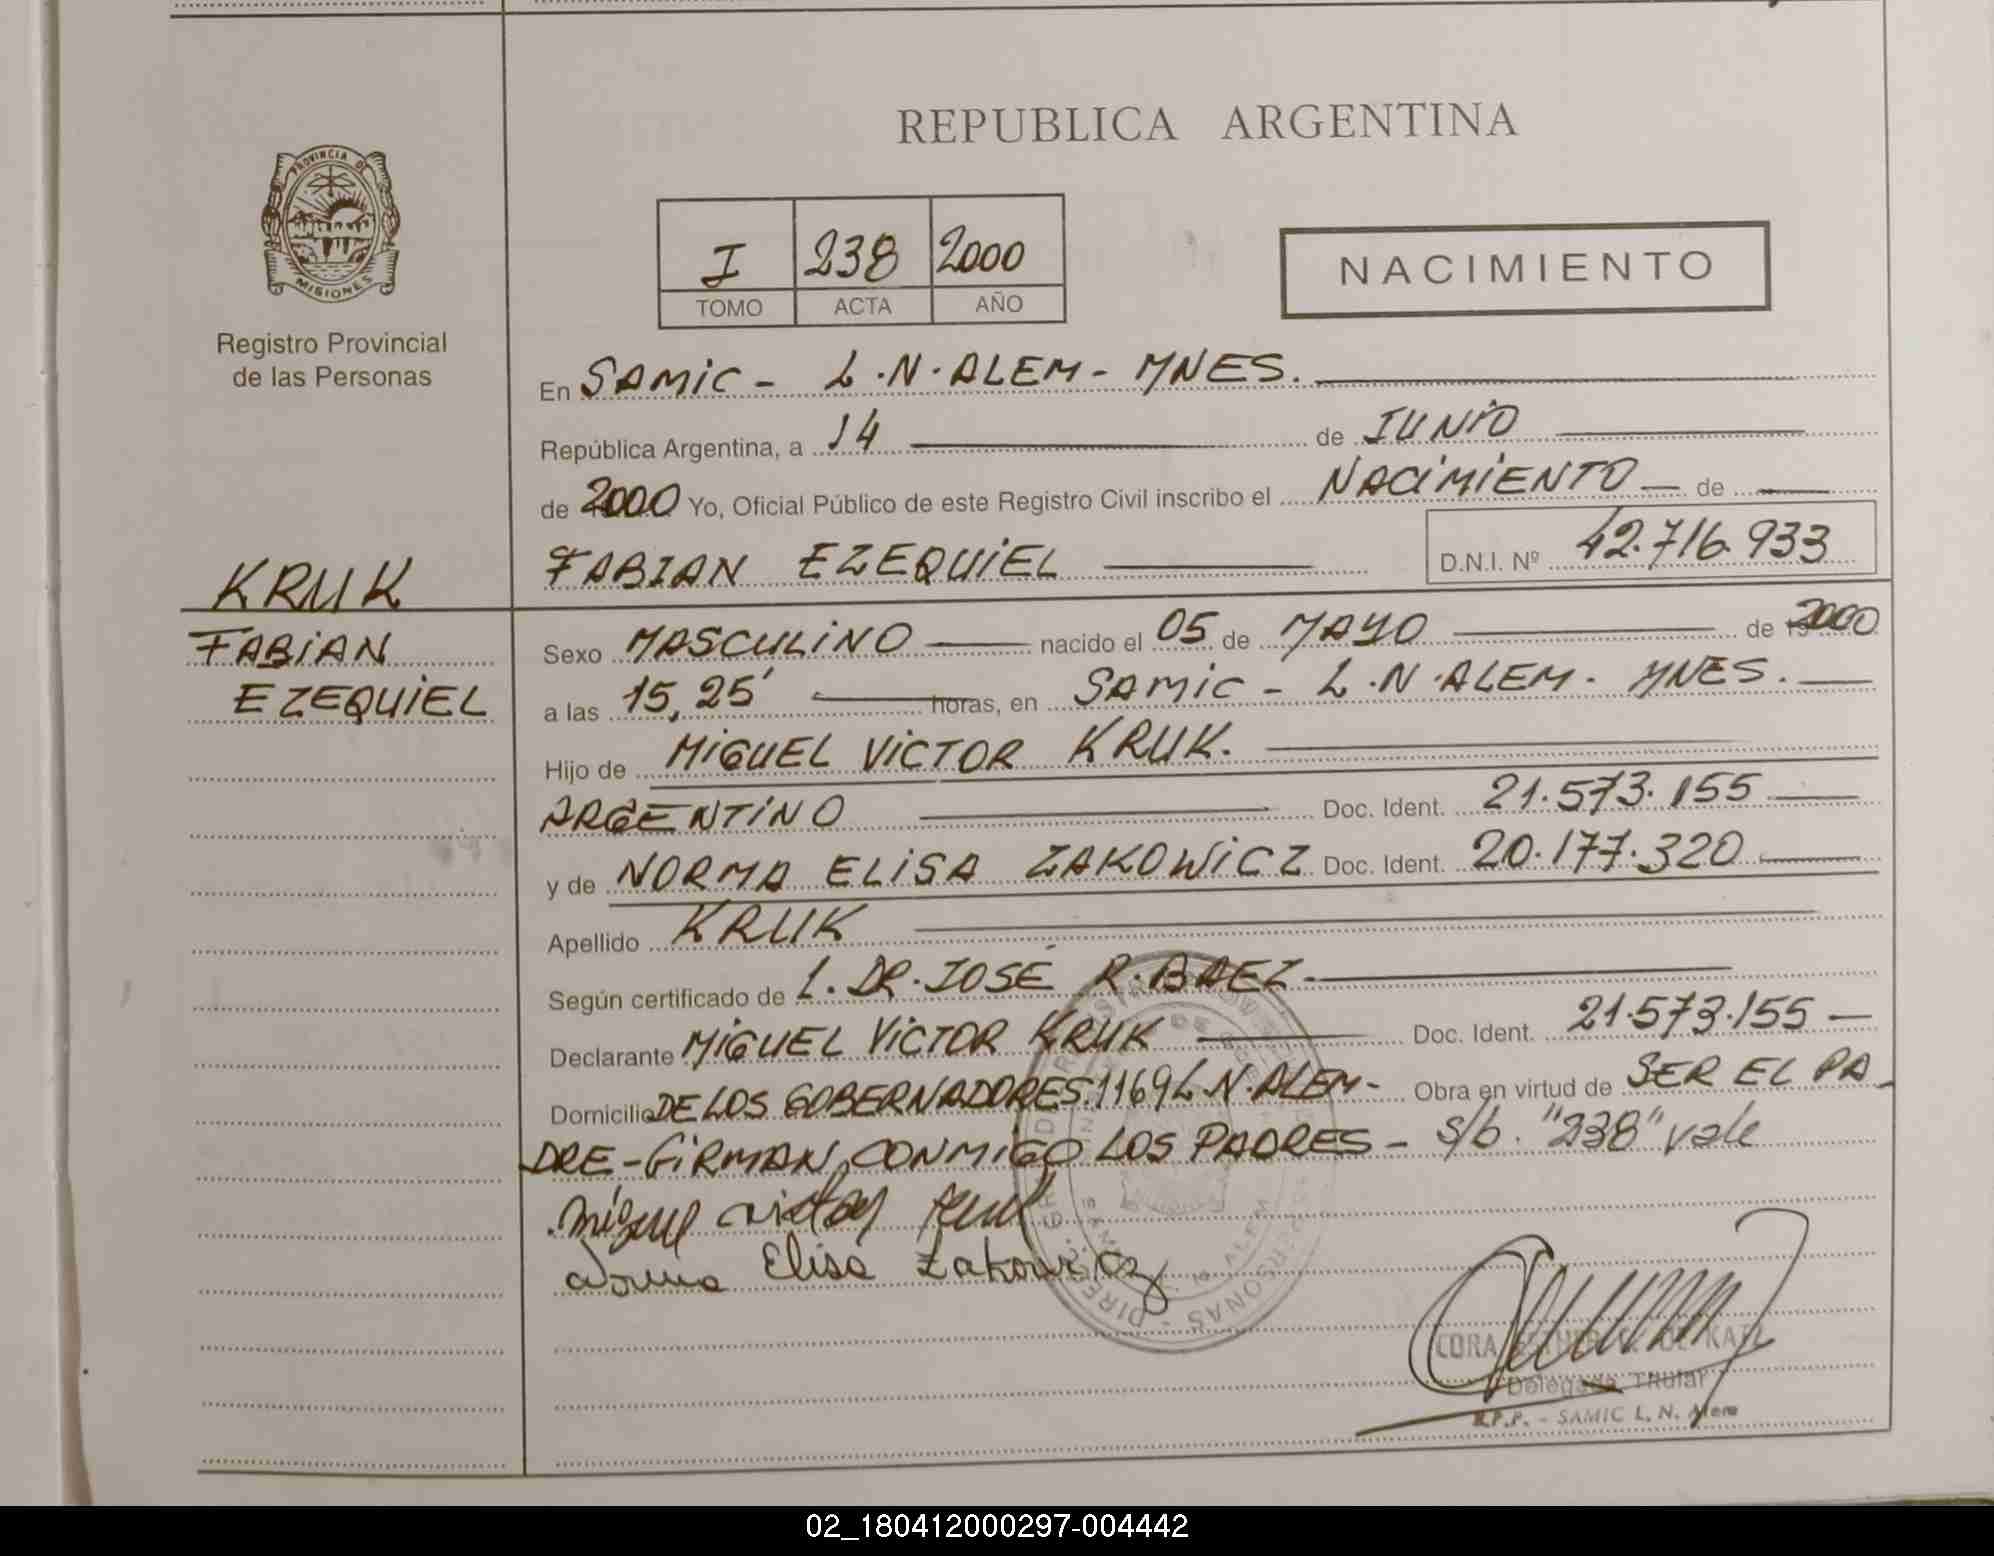 PROVINCIA DE
MISIONES
Registro Provincial
de las Personas
KRUK
FABIAN
EZEQUIEL
REPUBLICA ARGENTINA
I 238 2000
TOMO ACTA AÑO
NACIMIENTO
En SAMIC - L.N. ALEM - MNES.
República Argentina, a 14 de JUNIO
de 2000 Yo, Oficial Público de este Registro Civil inscribo el NACIMIENTO de
FABIAN EZEQUIEL D.N.I. Nº 42.716.933
Sexo MASCULINO nacido el 05 de MAYO de 2000
a las 15,25' horas, en SAMIC - L.N. ALEM. MNES.
Hijo de MIGUEL VICTOR KRUK.
ARGENTINO Doc. Ident. 21.573.155
y de NORMA ELISA ZAKOWICZ Doc. Ident. 20.177.320
Apellido KRUK
Según certificado de L. DR. JOSÉ R. BAEZ
Declarante MIGUEL VICTOR KRUK Doc. Ident. 21.573.155
Domicilio DE LOS GOBERNADORES.1169 L.N. ALEM- Obra en virtud de SER EL PA-
DRE - FIRMAN CONMIGO LOS PADRES - s/b. "238" vale
Miguel victor Kruk
Norma Elisa Zakowicz
Delegada Titular
R.P.P. - SAMIC L. N. Alem
02_180412000297-004442